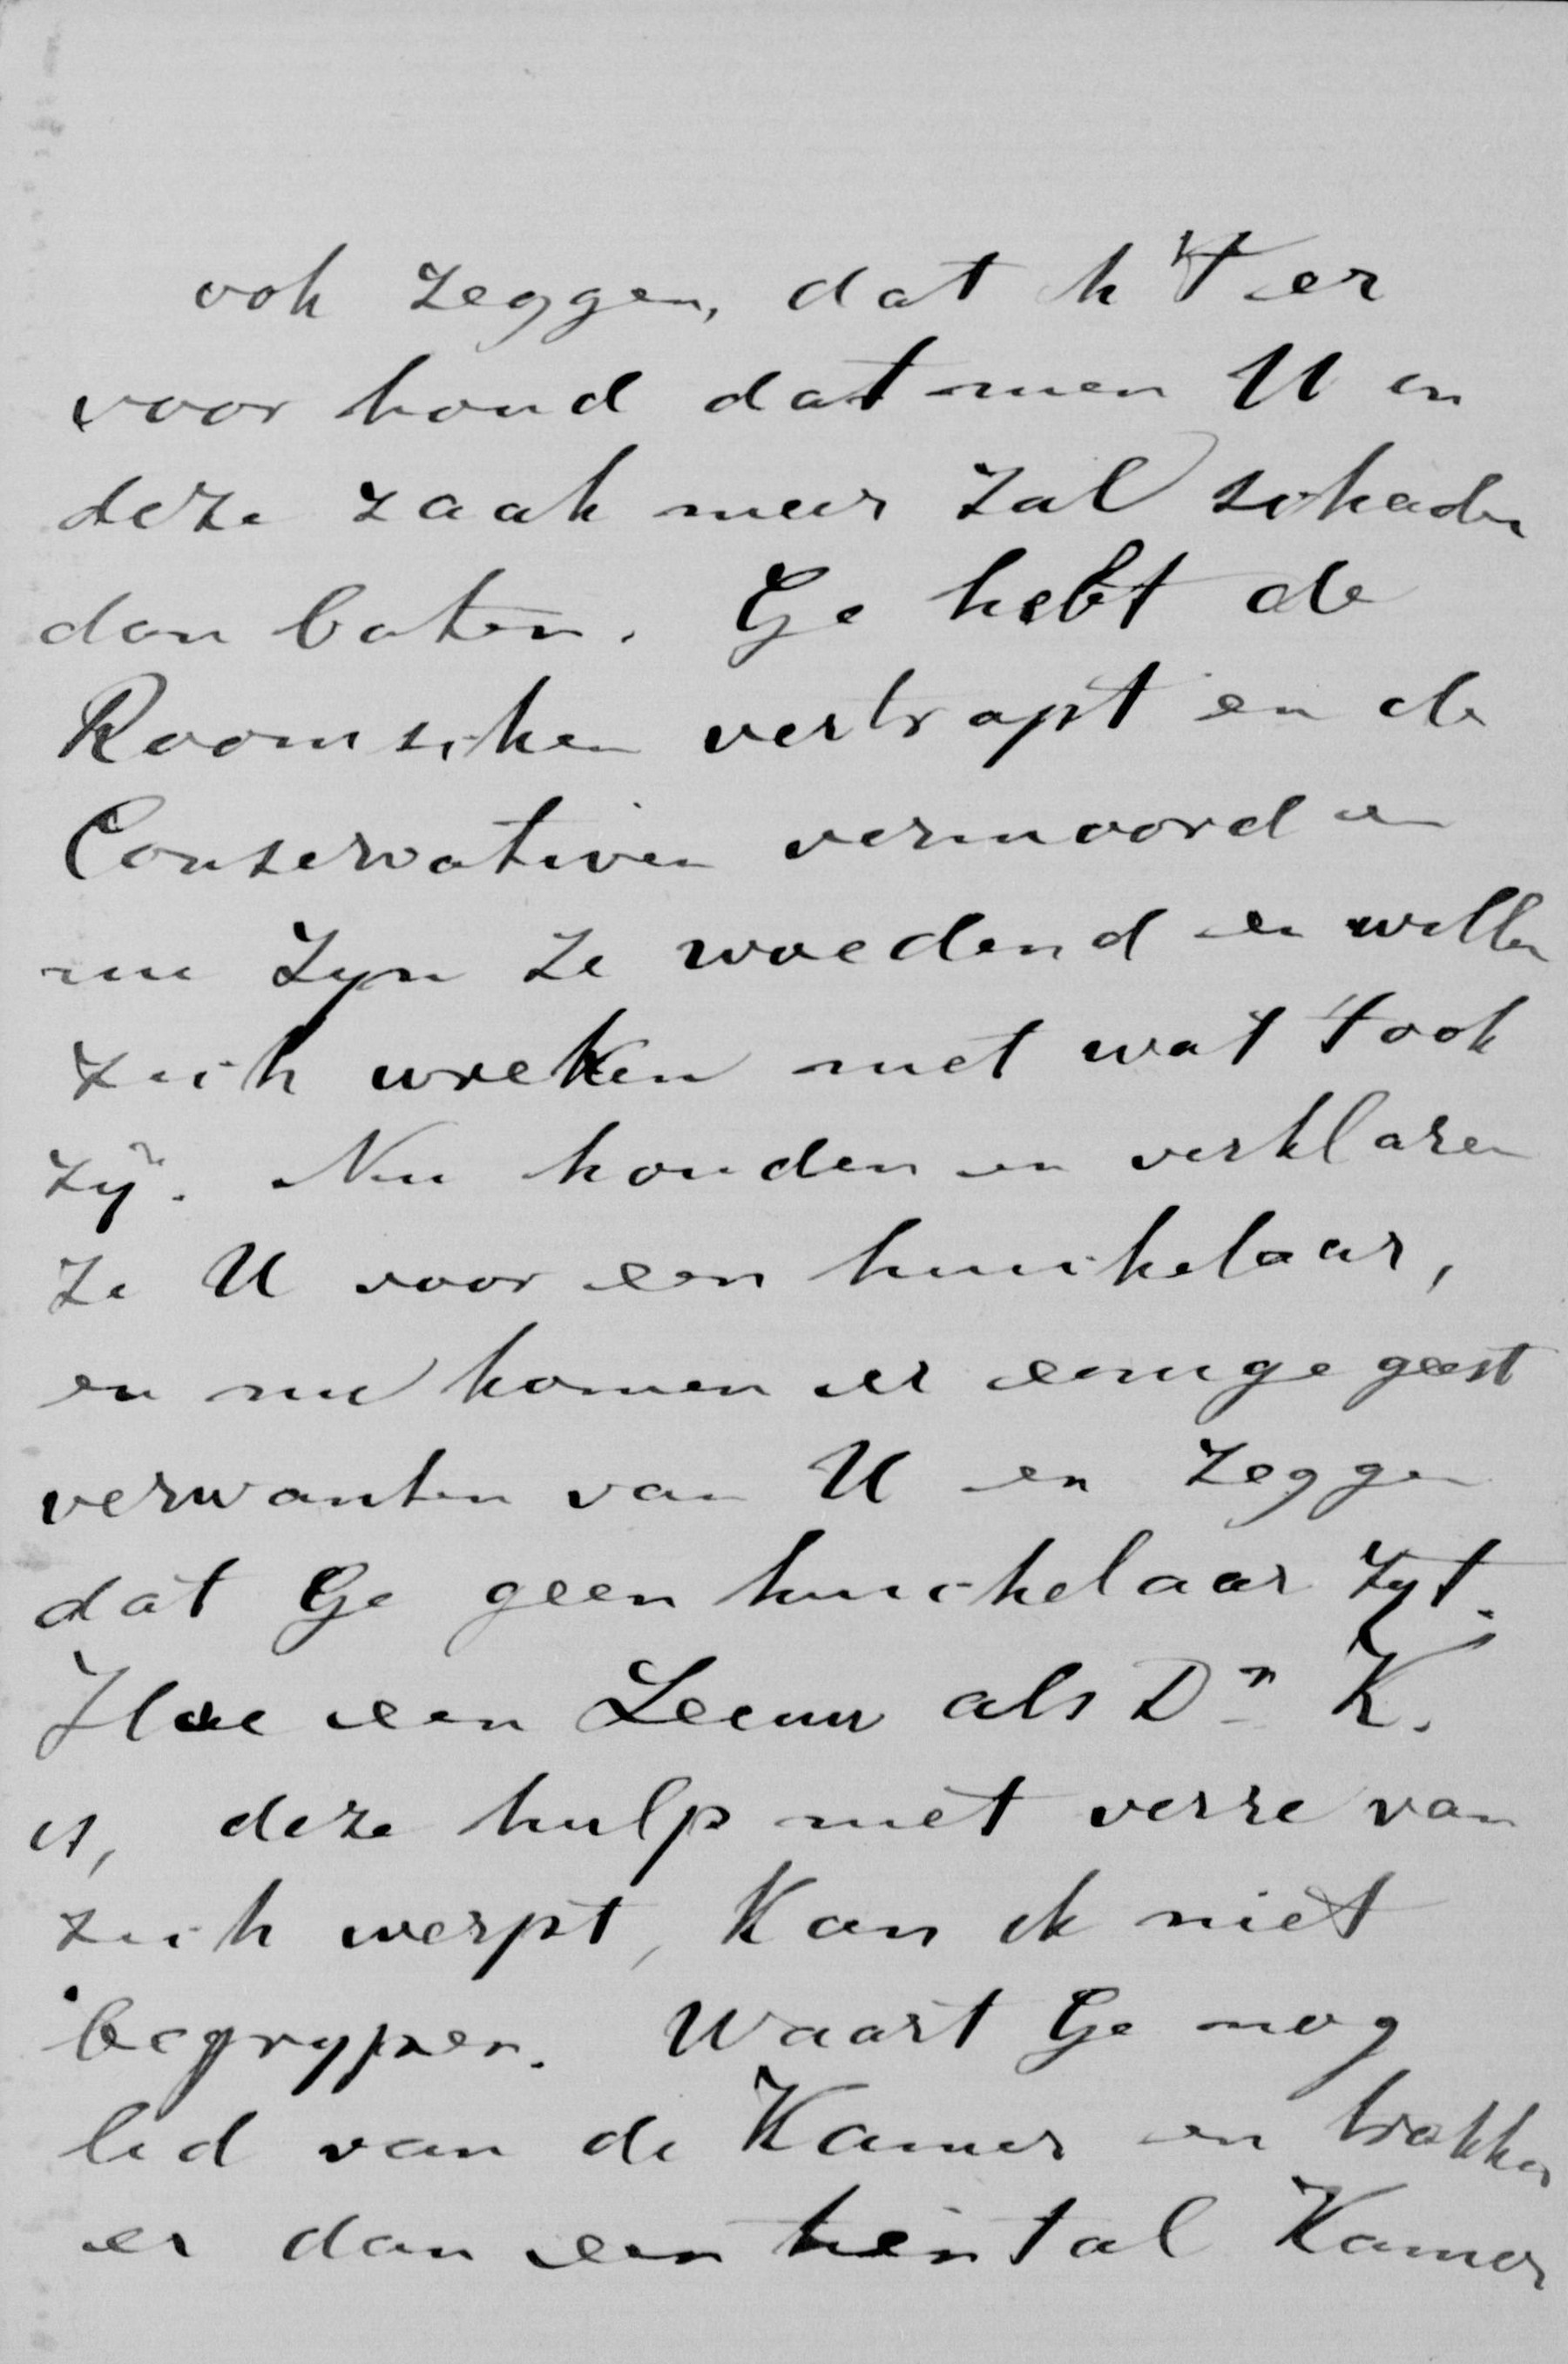 ook zeggen, dat ik 't er
voor houd dat men U in
deze zaak meer zal schaden
dan baten. Ge hebt de
Roomschen vertrapt en de
Conservatieven vermoord en
nu zyn ze woedend en willen
zich wreken met wat 't ook
zy. Nu houden en verklaren
ze U voor een huichelaar,
en nu komen er eenige geest
verwanten van U en zeggen
dat Ge geen huichelaar zyt.
Hoe een Leeuw als Dr K.
is, deze hulp niet verre van
zich werpt, kan ik niet
begrypen. Waart Ge nog
lid van de Kamer en trokken
er dan een tiental Kamer